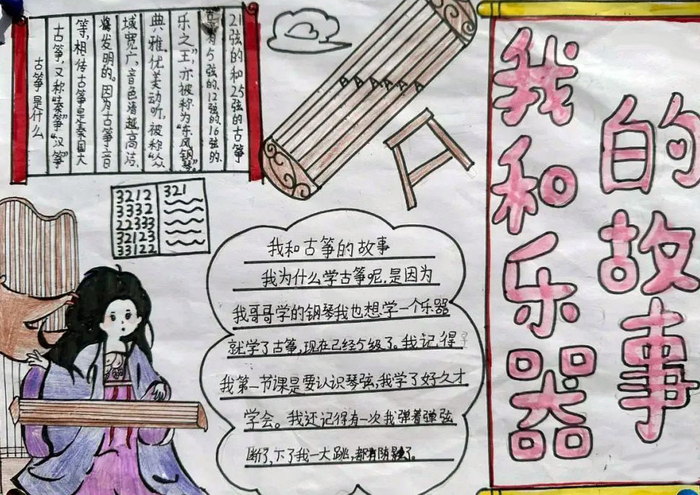 我和乐器
的故事
古筝是什么
古筝,又称"秦筝""汉筝"
等,相传古筝是秦国大
发明的。因为古筝音
域宽广,音色清越高洁、
典雅,优美动听,被称"众
乐之王",亦被称为"东风钢琴"
为5弦的、12弦的、16弦的、
21弦的和25弦的古筝
3212
3332
22333
32123
33122
321
我和古筝的故事
我为什么学古筝呢,是因为
我哥哥学的钢琴我也想学一个乐器
就学了古筝,现在已经5级了。我记得
我第一节课是要认识琴弦,我学了好久才
学会。我还记得有一次我弹着弹弦
断了,下了我一大跳,都有阴影了。